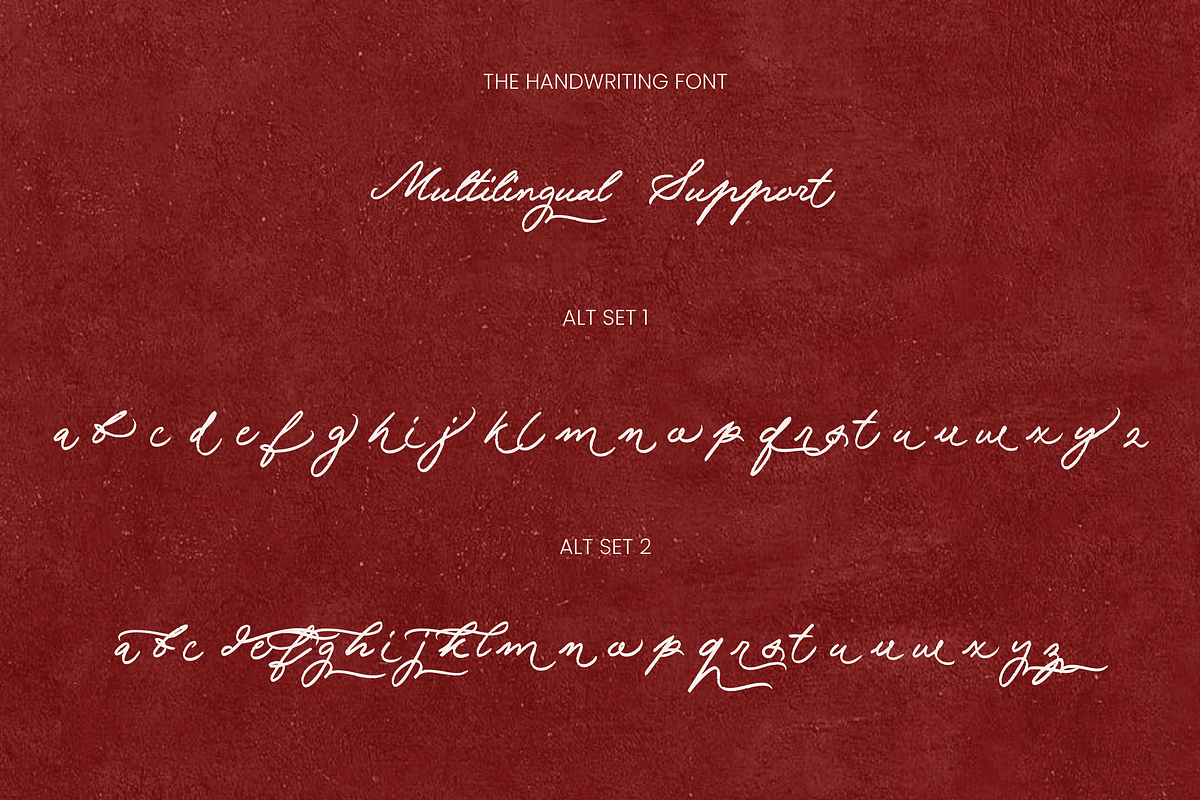 THE HANDWRITING FONT
Multilingual Support
ALT SET 1
a b c d e f g h i j k l m n o p q r s t u u w x y z
ALT SET 2
a b c d e f g h i j k l m n o p q r s t u u w x y z